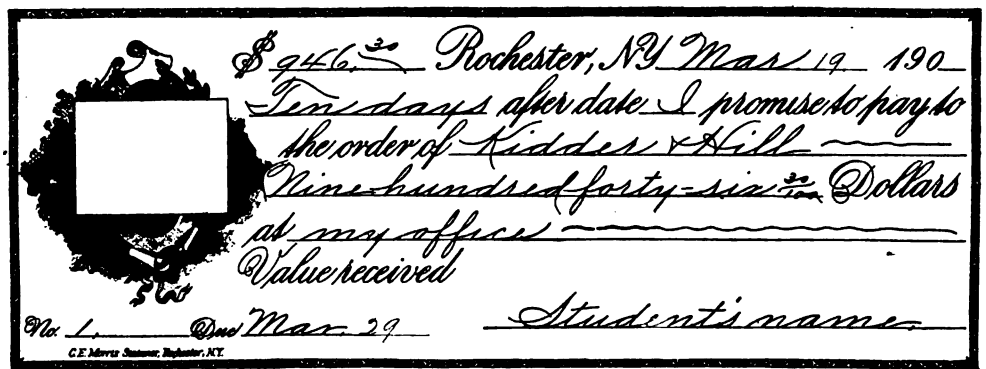 $ 946.30 Rochester, N.Y. Mar. 19 190
Ten days after date I promise to pay to
the order of Kidder & Hill
Nine hundred forty-six 30/100 Dollars
at my office
Value received
No. 1. Due Mar. 29 Student's name.
C.E. Morris Stationer, Rochester, N.Y.